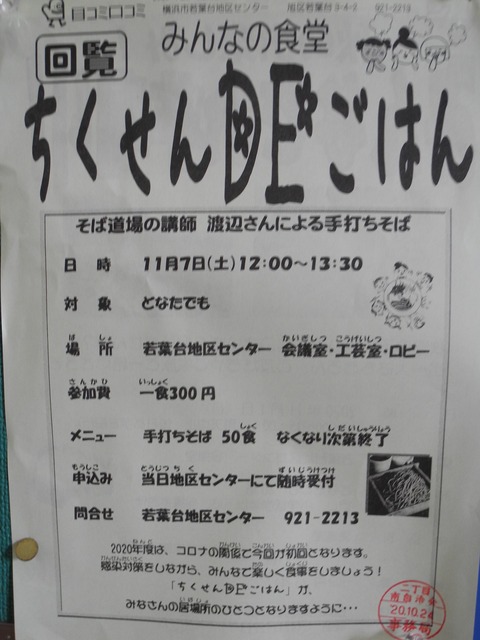 目コミ口コミ 横浜市若葉台地区センター 旭区若葉台3-4-2 921-2213
回覧
みんなの食堂
ちくせんDEごはん
そば道場の講師 渡辺さんによる手打ちそば
日 時 11月7日(土)12:00～13:30
対 象 どなたでも
ば しょ かいぎしつ こうげいしつ
場 所 若葉台地区センター 会議室・工芸室・ロビー
さんかひ いっしょく
参加費 一食300円
しょく しだいしゅうりょう
メニュー 手打ちそば 50食 なくなり次第終了
もうしこ とうじつちく ずいじうけつけ
申込み 当日地区センターにて随時受付
問合せ 若葉台地区センター 921-2213
2020年度は、コロナの関係で今回が初回となります。
感染対策をしながら、みんなで楽しく食事をしましょう！
「ちくせんDEごはん」が、
みなさんの居場所のひとつとなりますように･･･
二丁目
自治会
20.10.24
事務局